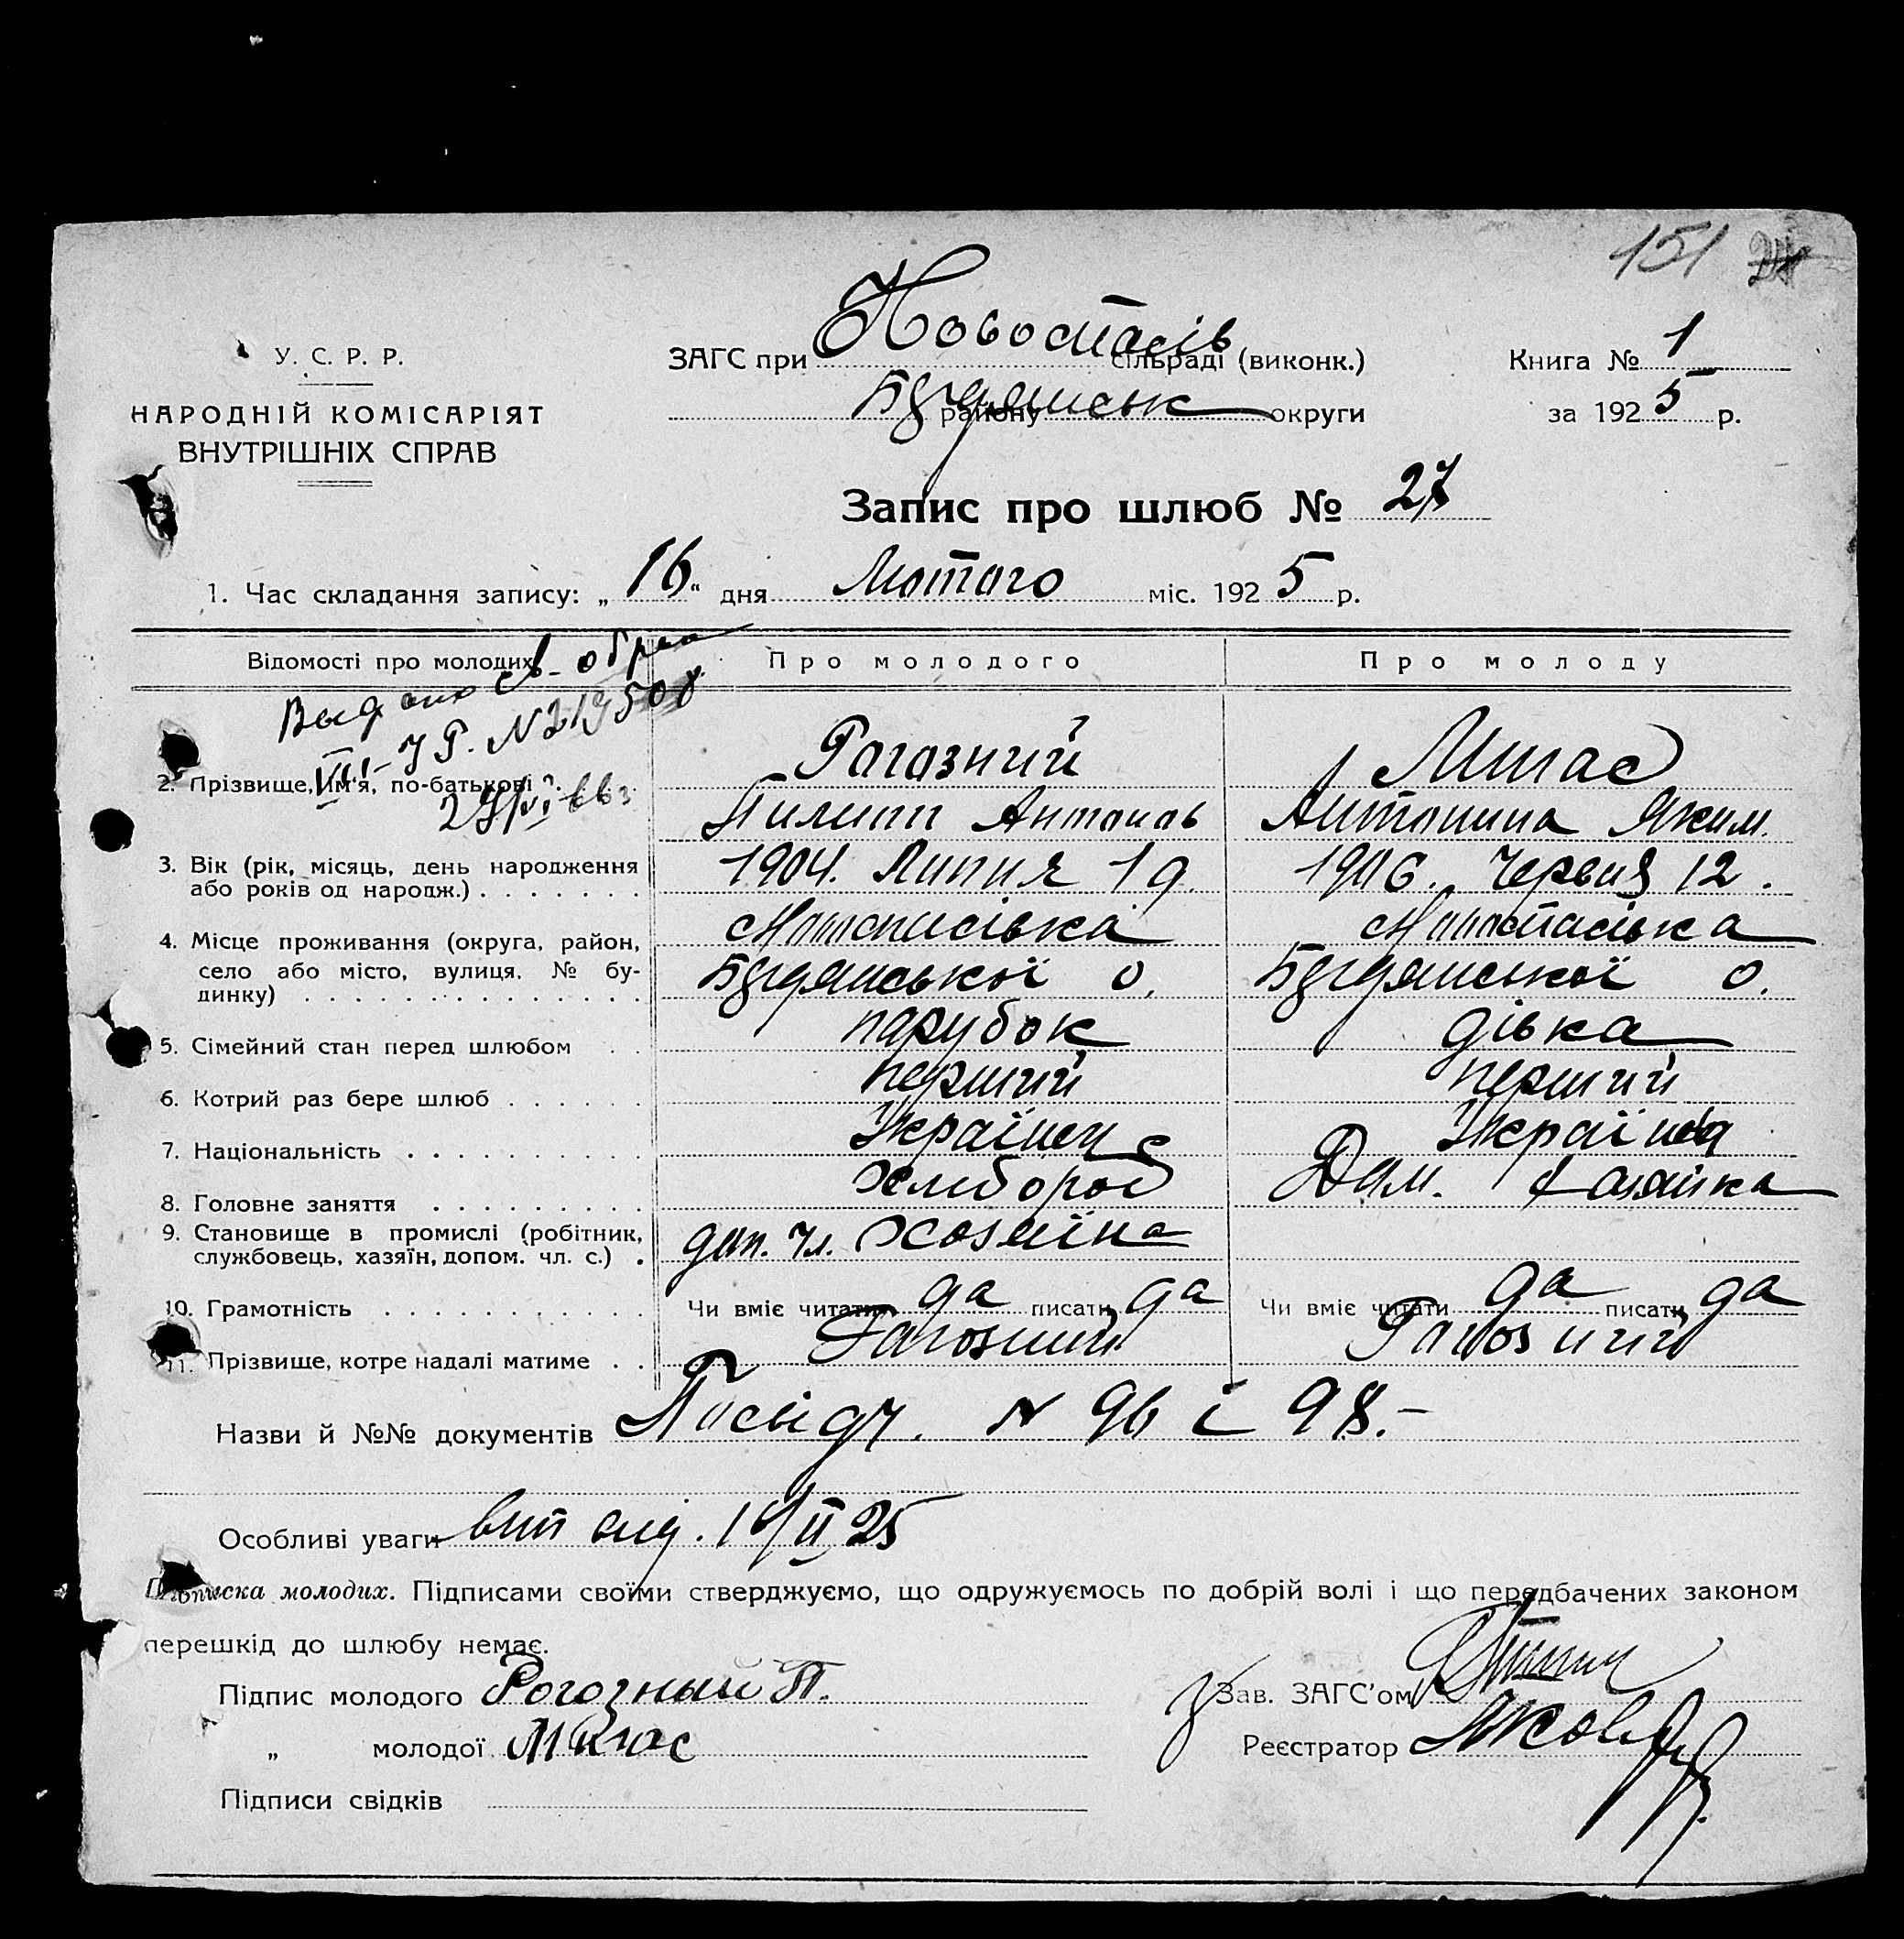 151
У. С. Р. Р.
НАРОДНІЙ КОМІСАРІЯТ
ВНУТРІШНІХ СПРАВ
ЗАГС при Новоспасів сільраді (виконк.)
району округи
Книга № 1
за 1925 р.
Запис про шлюб № 27
1. Час складання запису: „16“ дня Лютого міс. 1925 р.
Відомості про молодих
Про молодого
Про молоду
2. Прізвище, ім'я, по-батькові
Рагазний
Мигас
Пилип Антонов
Антонина Яким.
3. Вік (рік, місяць, день народження
або років од народж.)
1904. Липня 1 д.
1906. Червня 12.
4. Місце проживання (округа, район,
село або місто, вулиця, № бу-
динку)
5. Сімейний стан перед шлюбом
парубок
дівка
6. Котрий раз бере шлюб
перший
перший
7. Національність
Українец
8. Головне заняття
Хлебороб
Дом. Хазяйка
9. Становище в промислі (робітник,
службовець, хазяїн, допом. чл. с.)
доп. чл. Хозяїна
10. Грамотність
Чи вміє читати да писати да
Чи вміє читати да писати да
11. Прізвище, котре надалі матиме
Рагозний
Рагозний
Назви й №№ документів Посвідч. N 96 і 98.-
Особливі уваги
Підписка молодих. Підписами своїми стверджуємо, що одружуємось по добрій волі і що передбачених законом
перешкід до шлюбу немає.
Підпис молодого Рогозный П.
Зав. ЗАГС'ом
„ молодої Мигас
Реєстратор
Підписи свідків